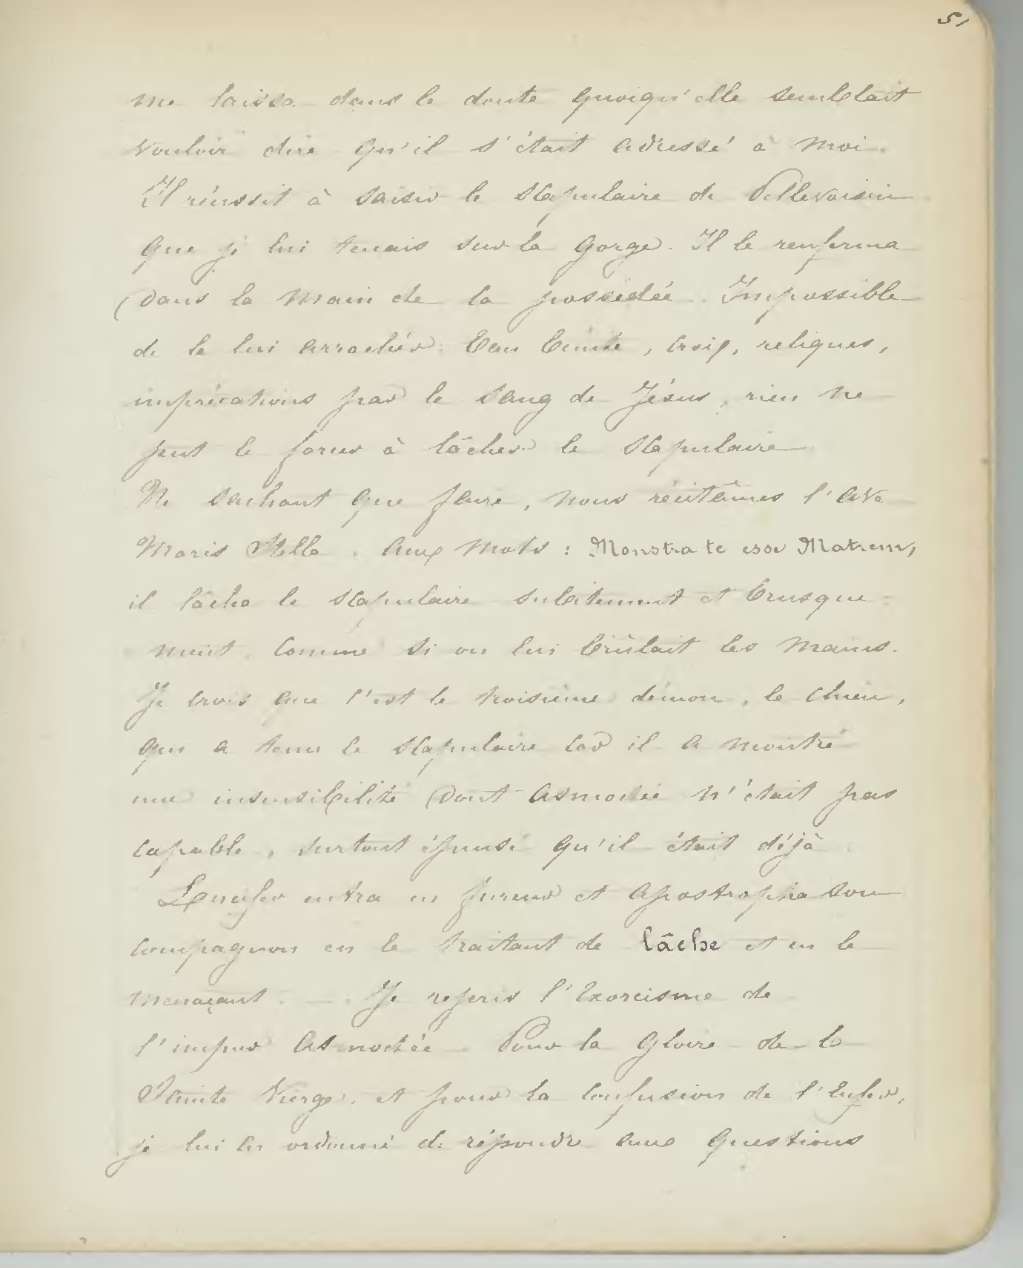 51
me laissa dans le doute quoiqu'elle semblait
vouloir dire qu'il s'était adressé à moi.
Il réussit à saisir le scapulaire de Pellevoisin
que je lui tenais sur la gorge. Il le renferma
dans la main de la possédée. Impossible
de le lui arracher. Eau bénite, croix, reliques,
imprécations par le sang de Jésus, rien ne
put le forcer à lâcher le scapulaire
Ne sachant que faire, nous récitâmes l'Ave
Maris Stella. Aux mots : Monstra te esse Matrem,
il lâcha le scapulaire subitement et brusque-
ment, comme si on lui brûlait les mains.
Je crois que c'est le troisième démon, le chien,
qui a tenu le scapulaire car il a montré
une insensibilité dont Asmodée n'était pas
capable, surtout épuisé qu'il était déjà.
Lucifer entra en fureur et apostropha son
compagnon en le traitant de lâche et en le
menaçant. — Je repris l'Exorcisme de
l'impur Asmodée. Pour la gloire de la
Sainte Vierge, et pour la confusion de l'Enfer,
je lui ai ordonné de répondre aux questions